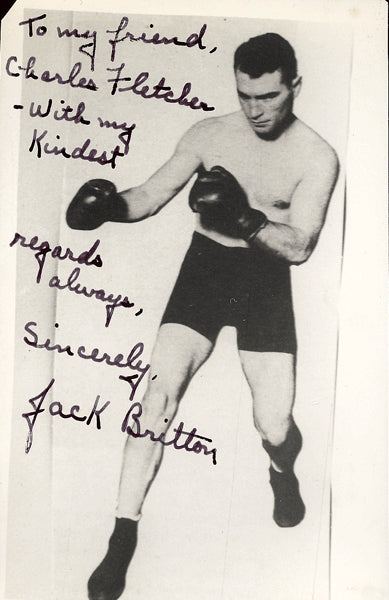 To my friend,
Charles Fletcher
- With my
Kindest
regards
always,
Sincerely,
Jack Britton